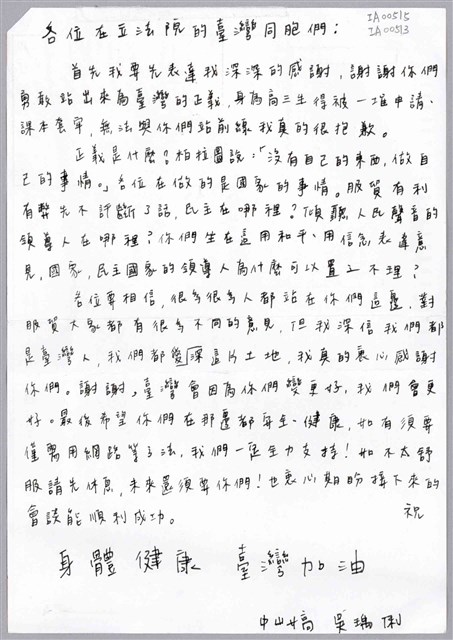 IA00515
IA00513
各位在立法院的臺灣同胞們：
首先我要先表達我深深的感謝，謝謝你們
勇敢站出來為臺灣的正義，身為高三生得被一堆申請、
課本套牢，無法與你們站前線我真的很抱歉。
正義是什麼？柏拉圖說：「沒有自己的東西，做自
己的事情。」各位在做的是國家的事情。服貿有利
有弊先不評斷了話，民主在哪裡？傾聽人民聲音的
領導人在哪裡？你們坐在這用和平、用信念表達意
見，國家，民主國家的領導人為什麼可以置之不理？
各位要相信，很多很多人都站在你們這邊，對
服貿大家都有很多不同的意見，但我深信我們都
是臺灣人，我們都愛深這片土地，我真的衷心感謝
你們。謝謝。臺灣會因為你們變更好，我們會更
好。最後希望你們在那邊都安全、健康，如有須要
僅需用網路等方法，我們一定全力支持！如不太舒
服請先休息，未來還須要你們！也衷心期盼接下來的
會談能順利成功。 祝
身體健康 臺灣加油
中山女高 吳瑀俐